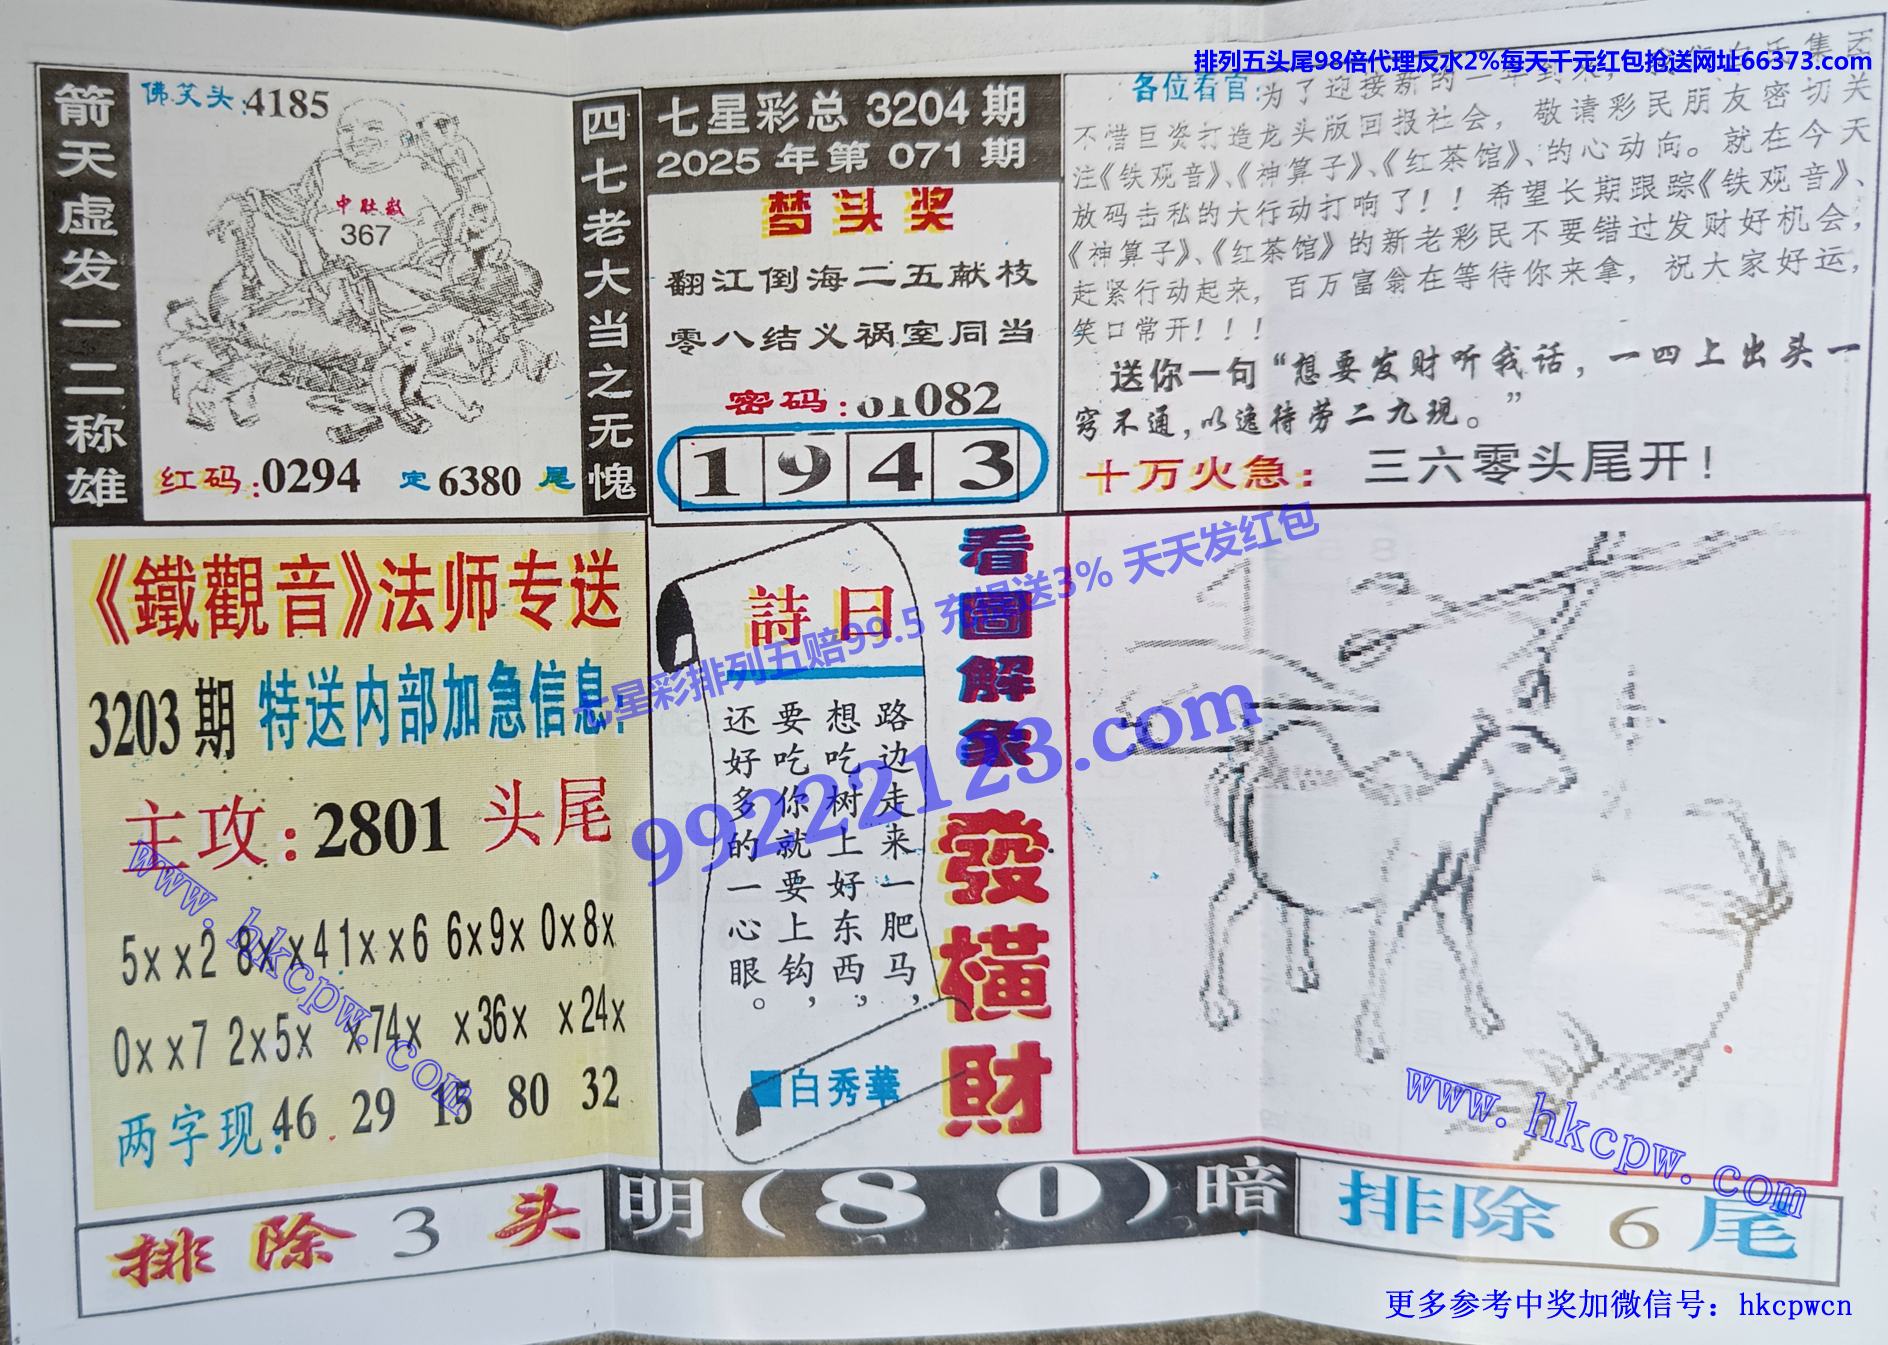 排列五头尾98倍代理反水2%每天千元红包抢送网址66373.com
箭天虚发一二称雄
佛笑头:4185
中肚数
367
红码:0294 定6380尾
四七老大当之无愧
七星彩总3204期
2025年第071期
梦头奖
翻江倒海二五献枝
零八结义祸室同当
密码:61082
1 9 4 3
各位看官:为了迎接新的一年到来,
不惜巨资打造龙头版回报社会,敬请彩民朋友密切关
注《铁观音》、《神算子》、《红茶馆》、的心动向。就在今天
放码击私的大行动打响了!!希望长期跟踪《铁观音》、
《神算子》、《红茶馆》的新老彩民不要错过发财好机会,
赶紧行动起来,百万富翁在等待你来拿,祝大家好运,
笑口常开!!!
送你一句“想要发财听我话,一四上出头一
窍不通,以逸待劳二九现。”
十万火急:三六零头尾开!
《鐵觀音》法师专送
3203期 特送内部加急信息!
主攻:2801头尾
5xx2 8xx4 1xx6 6x9x 0x8x
0xx7 2x5x x74x x36x x24x
两字现:46 29 15 80 32
詩曰
路边走来一肥马,
想吃树上好东西,
要吃你就要上钩,
还好多的一心眼。
白秀華
看圖解象
發横財
七星彩排列五赔99.5 充提送3% 天天发红包
99222123.com
www.hkcpw.com
www.hkcpw.com
排除3头
明(80)暗
排除6尾
更多参考中奖加微信号:hkcpwcn